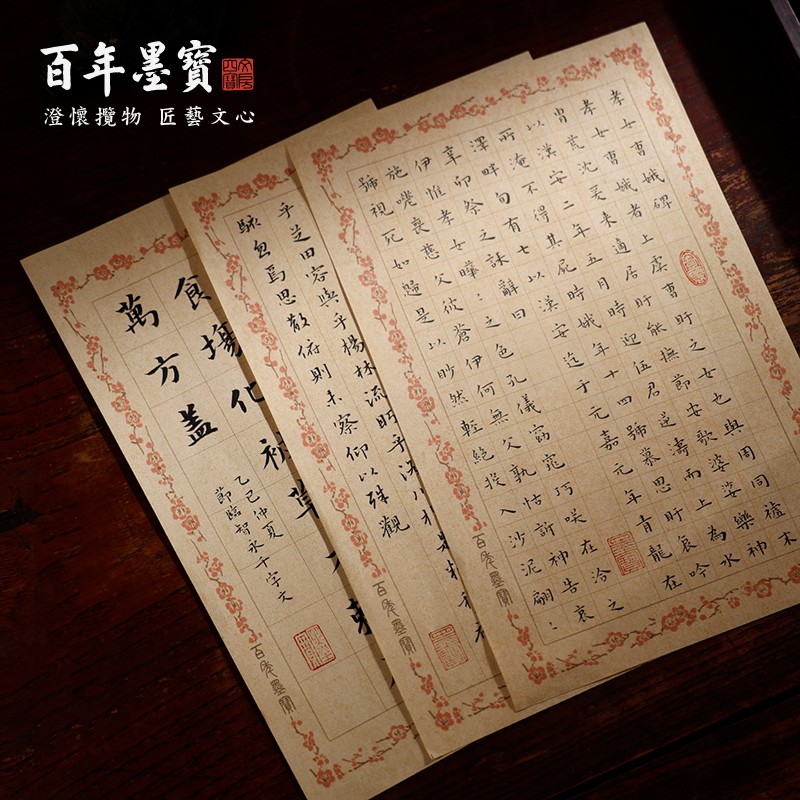 百年墨寶
文房四寶
澄懷攬物 匠藝文心
孝女曹娥碑
孝女曹娥者上虞曹盱之女也與周同禮木
胄荒沈爰来適居盱能撫節安歌婆娑樂神
以漢安二年五月時迎伍君逆濤而上為水
所淹不得其屍時娥年十四號慕思盱哀吟
澤畔旬有七以漢安迄于元嘉元年青龍在
辛卯祭之誄辭曰
伊惟孝女曄：之色孔儀窈窕巧咲在洽之
施嗟喪慈父彼蒼伊何無父孰怙訴神告哀
號視死如歸是以眇然輕絕投入沙泥翩：
百年墨寶
乎芝田容與乎楊林流眄乎洛川於是精移神
駭忽焉思散俯則未察仰以殊觀
百年墨寶
食場化被草木賴
萬方蓋
乙巳仲夏
節臨智永千字文
百年墨寶